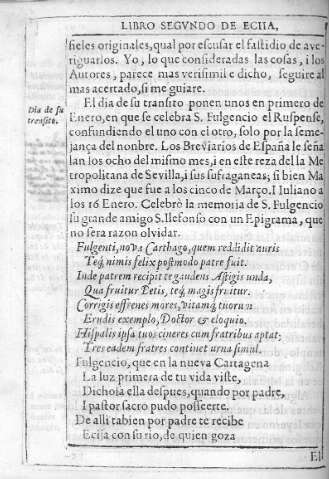 LIBRO SEGVNDO DE ECIIA,
fieles originales, qual por escusar el fastidio de ave-
riguarlos. Yo, lo que consideradas las cosas, i los
Autores, parece mas verisimil e dicho, seguire al
mas acertado, si me guiare.
Dia de su
transito.
El dia de su transito ponen unos en primero de
Enero, en que se celebra S. Fulgencio el Ruspense,
confundiendo el uno con el otro, solo por la seme-
jança del nonbre. Los Breviarios de España le seña
lan los ocho del mismo mes, i en este reza della Me
tropolitana de Sevilla, i sus sufraganeas; si bien Ma
ximo dize que fue a los cinco de Março. I Iuliano a
los 16 Enero. Celebrò la memoria de S. Fulgencio
su grande amigo S. Ilefonso con un Epigrama, que
no sera razon olvidar.
Fulgenti, nova Carthago, quem reddidit auris
Teq, nimis felix postmodo patre fuit.
Inde patrem recipit te gaudens Astigis unda,
Qua fruitur Betis, teq, magis fruitur.
Corrigis effrenes mores, vitamq, tuorum
Erudis exemplo, Doctor & eloquio.
Hispalis ipsa tuos cineres cum fratribus aptat;
Tres eadem fratres continet urna simul.
Fulgencio, que en la nueva Cartagena
La luz primera de tu vida viste,
Dichosa ella despues, quando por padre,
I pastor sacro pudo posseerte.
De alli tabien por padre te recibe
Ecija con su rio, de quien goza
El